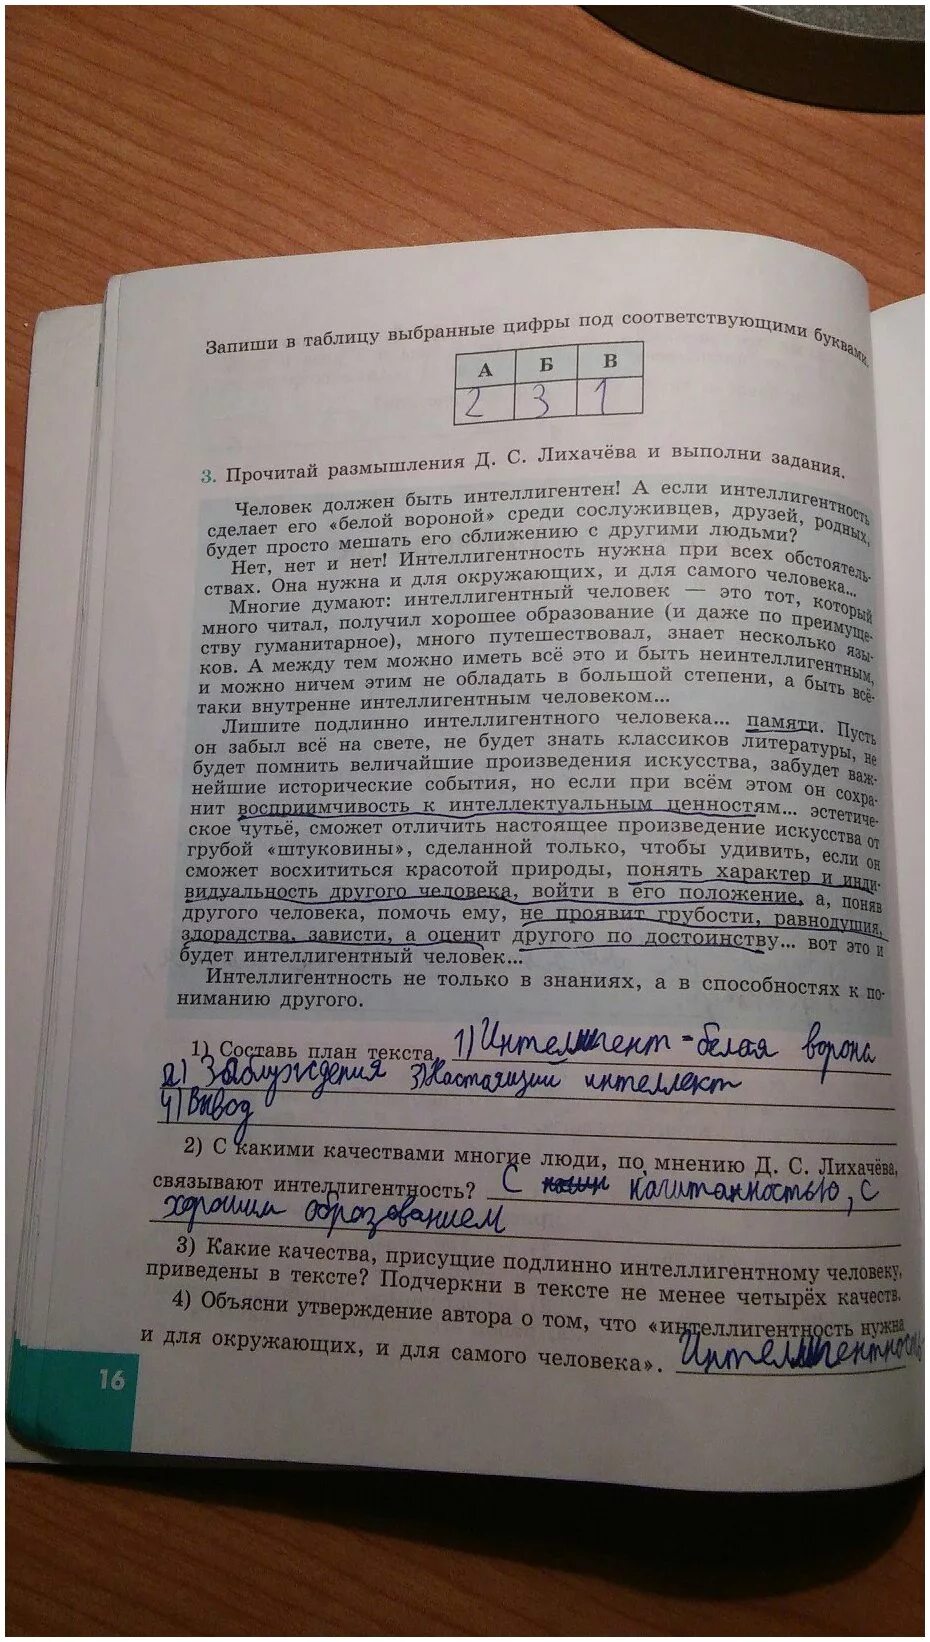 Запиши в таблицу выбранные цифры под соответствующими буквами.
А Б В
2 3 1
3. Прочитай размышления Д. С. Лихачёва и выполни задания.
Человек должен быть интеллигентен! А если интеллигентность
сделает его «белой вороной» среди сослуживцев, друзей, родных,
будет просто мешать его сближению с другими людьми?
Нет, нет и нет! Интеллигентность нужна при всех обстоятель-
ствах. Она нужна и для окружающих, и для самого человека...
Многие думают: интеллигентный человек — это тот, который
много читал, получил хорошее образование (и даже по преимуще-
ству гуманитарное), много путешествовал, знает несколько язы-
ков. А между тем можно иметь всё это и быть неинтеллигентным,
и можно ничем этим не обладать в большой степени, а быть всё-
таки внутренне интеллигентным человеком...
Лишите подлинно интеллигентного человека... памяти. Пусть
он забыл всё на свете, не будет знать классиков литературы, не
будет помнить величайшие произведения искусства, забудет важ-
нейшие исторические события, но если при всём этом он сохра-
нит восприимчивость к интеллектуальным ценностям... эстетиче-
ское чутьё, сможет отличить настоящее произведение искусства от
грубой «штуковины», сделанной только, чтобы удивить, если он
сможет восхититься красотой природы, понять характер и инди-
видуальность другого человека, войти в его положение, а, поняв
другого человека, помочь ему, не проявит грубости, равнодушия,
злорадства, зависти, а оценит другого по достоинству... вот это и
будет интеллигентный человек...
Интеллигентность не только в знаниях, а в способностях к по-
ниманию другого.
1) Составь план текста. 1) Интеллигент - белая ворона
2) Заблуждения 3) Настоящий интеллект
4) Вывод
2) С какими качествами многие люди, по мнению Д. С. Лихачёва,
связывают интеллигентность? С начитанностью, с
хорошим образованием
3) Какие качества, присущие подлинно интеллигентному человеку,
приведены в тексте? Подчеркни в тексте не менее четырёх качеств.
4) Объясни утверждение автора о том, что «интеллигентность нужна
и для окружающих, и для самого человека». Интеллигентность
16